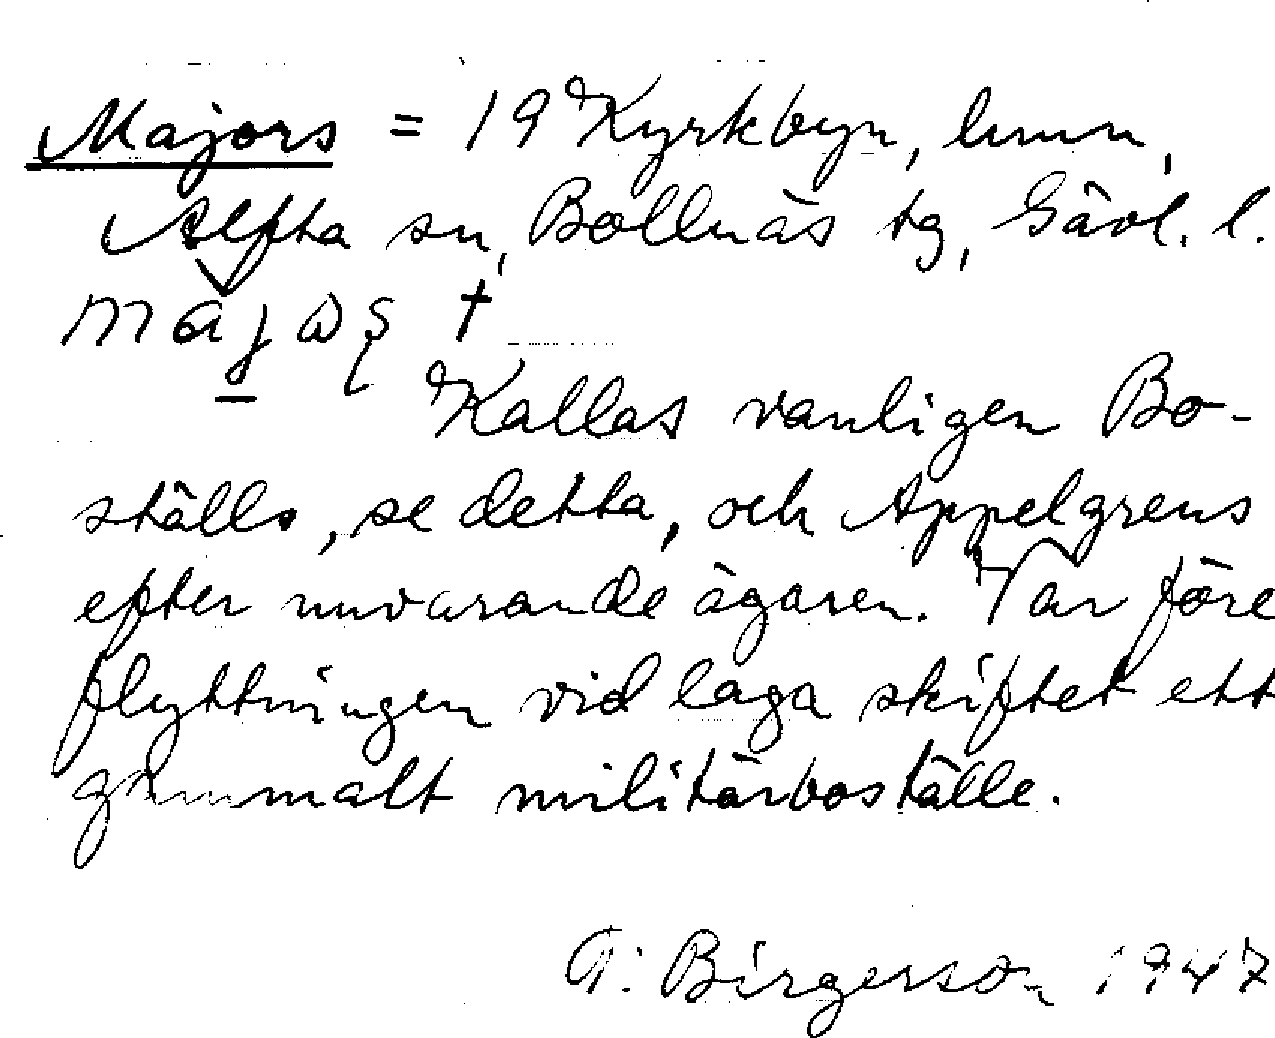 Majors = 19 Kyrkbyn, hmn,
Alfta sn, Bollnäs tg, Gävl. l.
Kallas vanligen Bo-
ställs, se detta, och Appelgrens
efter nuvarande ägaren. Var före
flyttningen vid laga skiftet ett
gammalt militärboställe.
G. Birgerson 1947